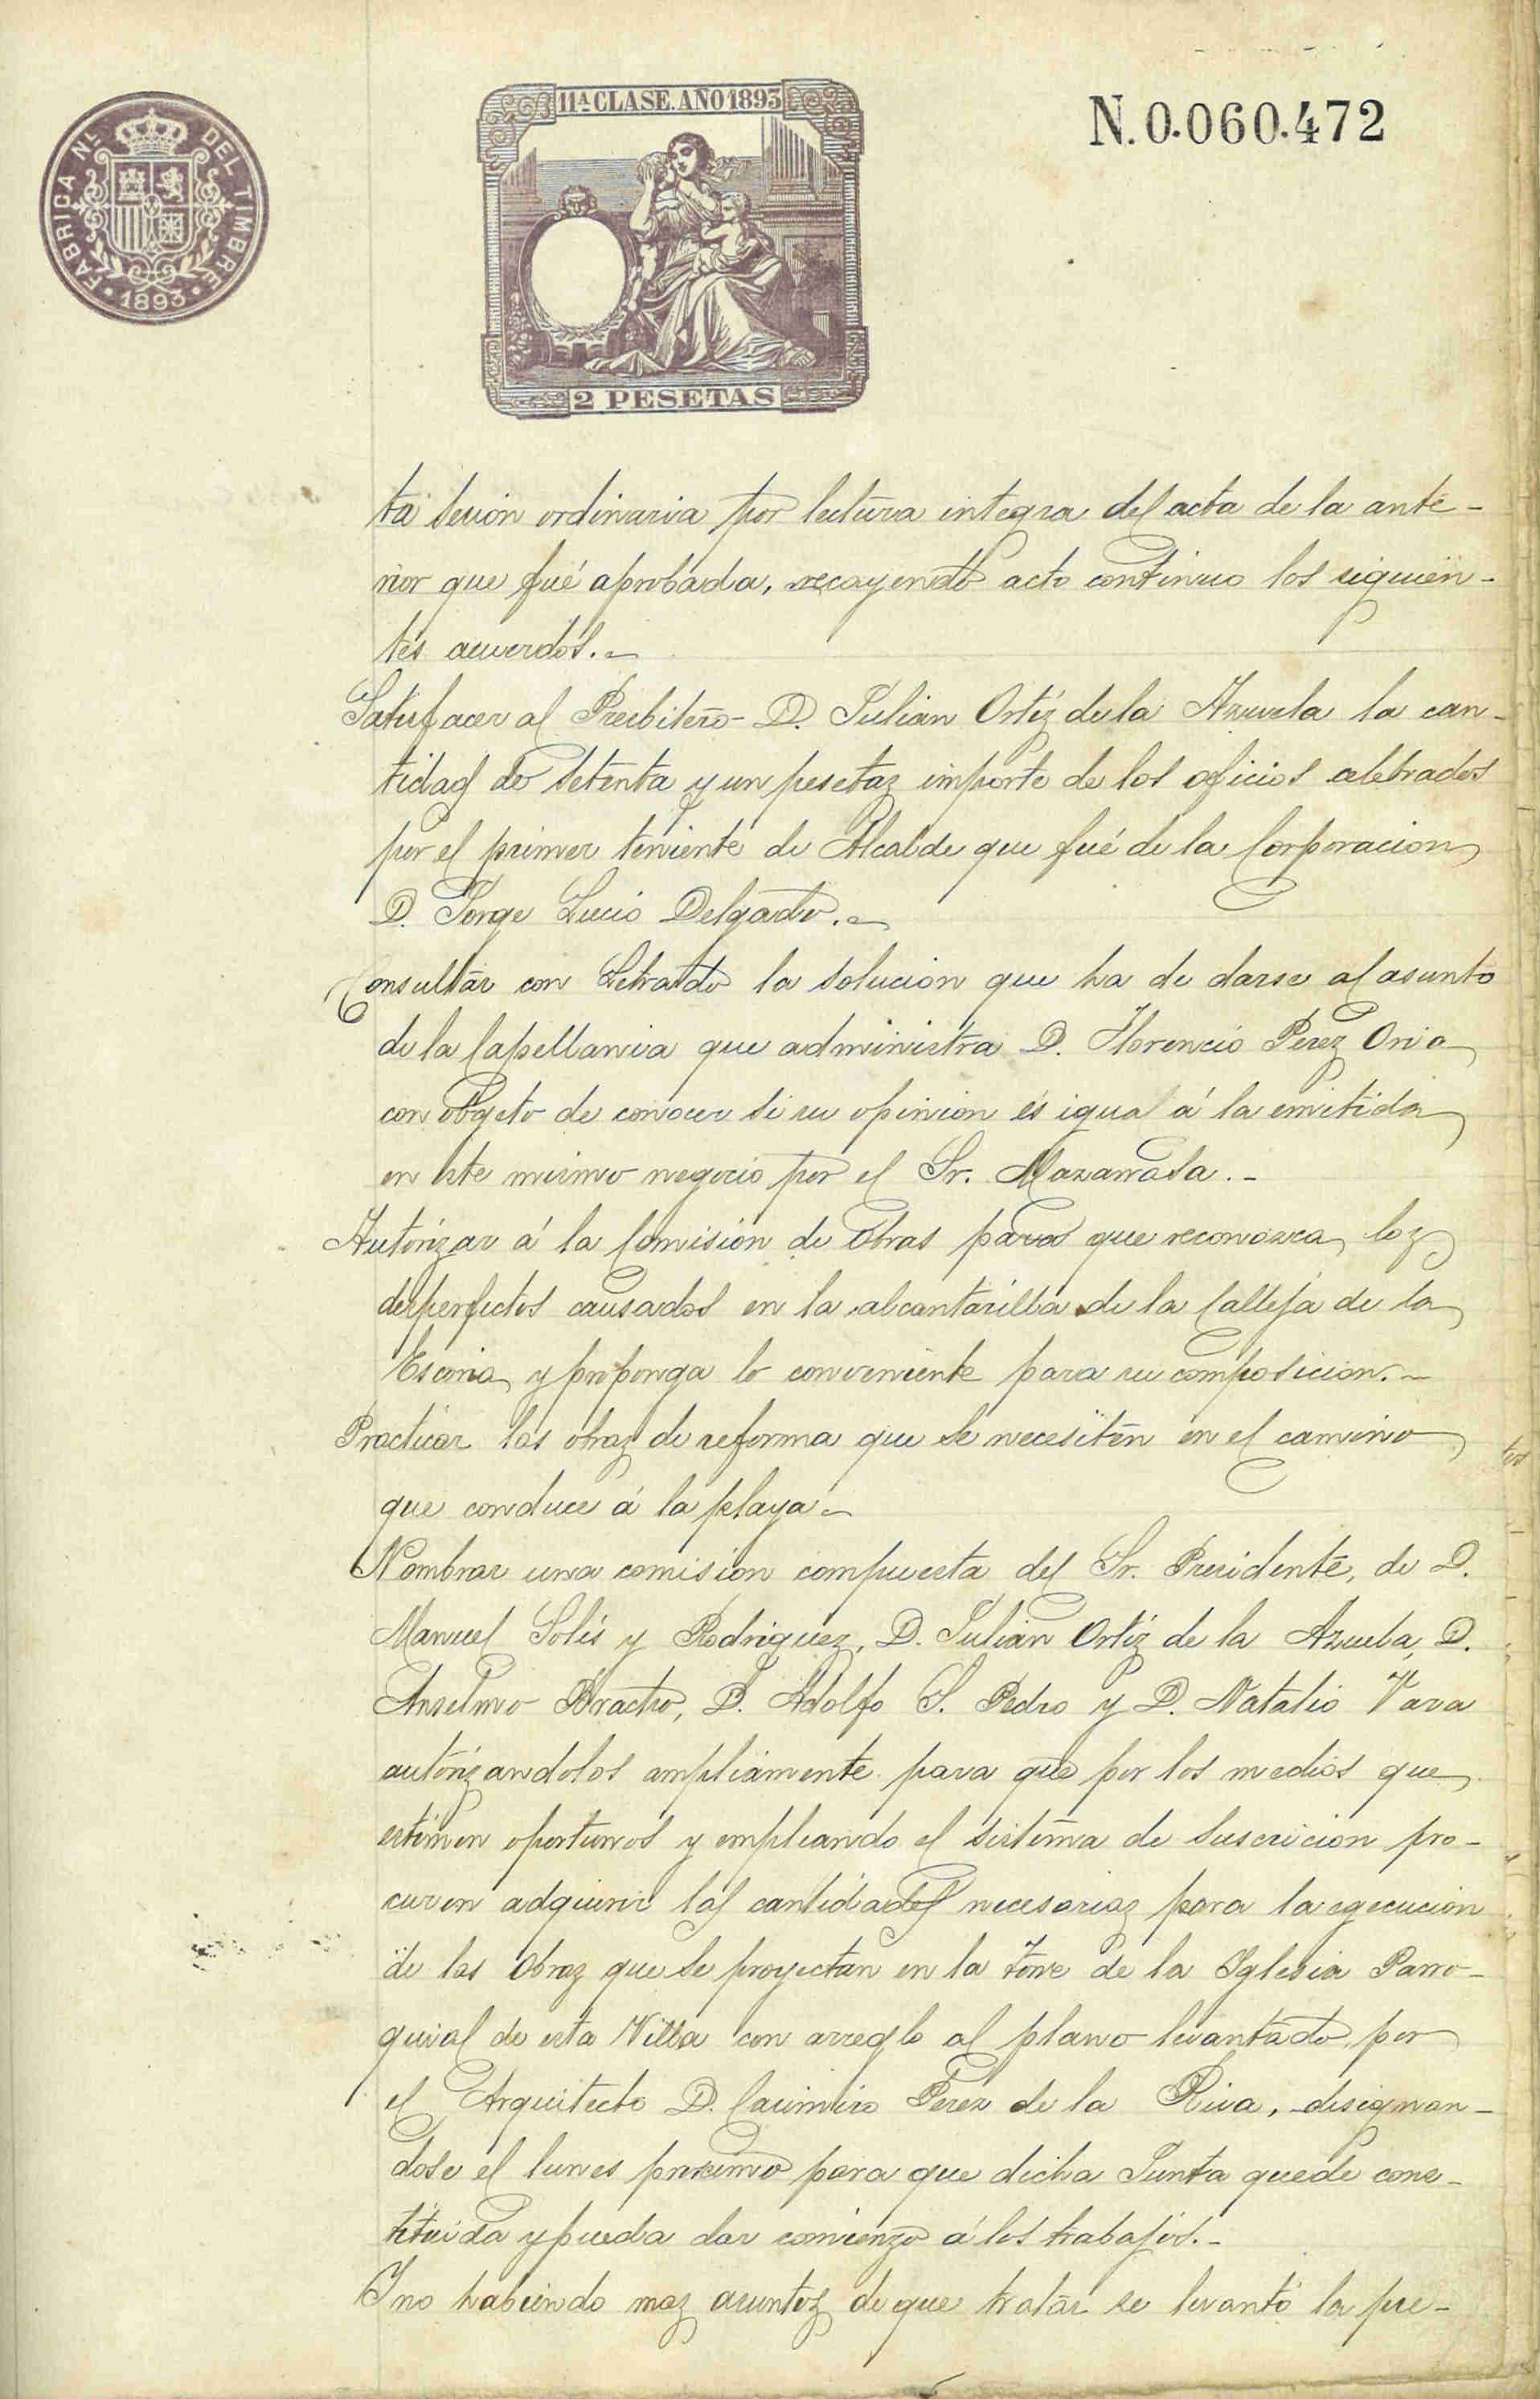 FABRICA NL DEL TIMBRE
1893
11ª CLASE. AÑO 1893
2 PESETAS
N. 0.060.472
ta sesión ordinaria por lectura integra del acta de la ante-
rior que fué aprobada, recayendo acto continuo los siguien-
tes acuerdos.-
Satisfacer al Presbitero D. Julian Ortiz de la Azuela la can-
tidad de setenta y un pesetas importe de los oficios celebrados
por el primer teniente de Alcalde que fué de la Corporacion
D. Jorge Lucio Delgado.-
Consultar con Letrado la solucion que ha de darse al asunto
de la Capellania que administra D. Florencio Perez Oria
con obgeto de conocer si su opinion és igual á la emitida
en este mismo negocio por el Sr. Mazarrasa.-
Autorizar á la Comisión de Obras para que reconozca los
desperfectos causados en la alcantarilla de la Calleja de la
Escoria y proponga lo conveniente para su composicion.-
Practicar las obras de reforma que se necesiten en el camino
que conduce á la playa-
Nombrar una comision compuesta del Sr. Presidente, de D.
Manuel Solis y Rodriguez, D. Julián Ortiz de la Azuela, D.
Anselmo Bracho, D. Adolfo S. Pedro y D. Natalio Vara
autorizandolos ampliamente para que por los medios que
estimen oportunos y empleando el sistema de suscricion pro-
curen adquirir las cantidades necesarias para la egecucion
de las obras que se proyectan en la torre de la Iglesia Parro-
quial de esta Villa con arreglo al plano levantado por
el Arquitecto D. Casimiro Perez de la Riva, designan-
dose el lunes proximo para que dicha Junta quede cons-
tituida y pueda dar comienzo á los trabajos.-
Y no habiendo mas asuntos de que tratar se levantó la pre-